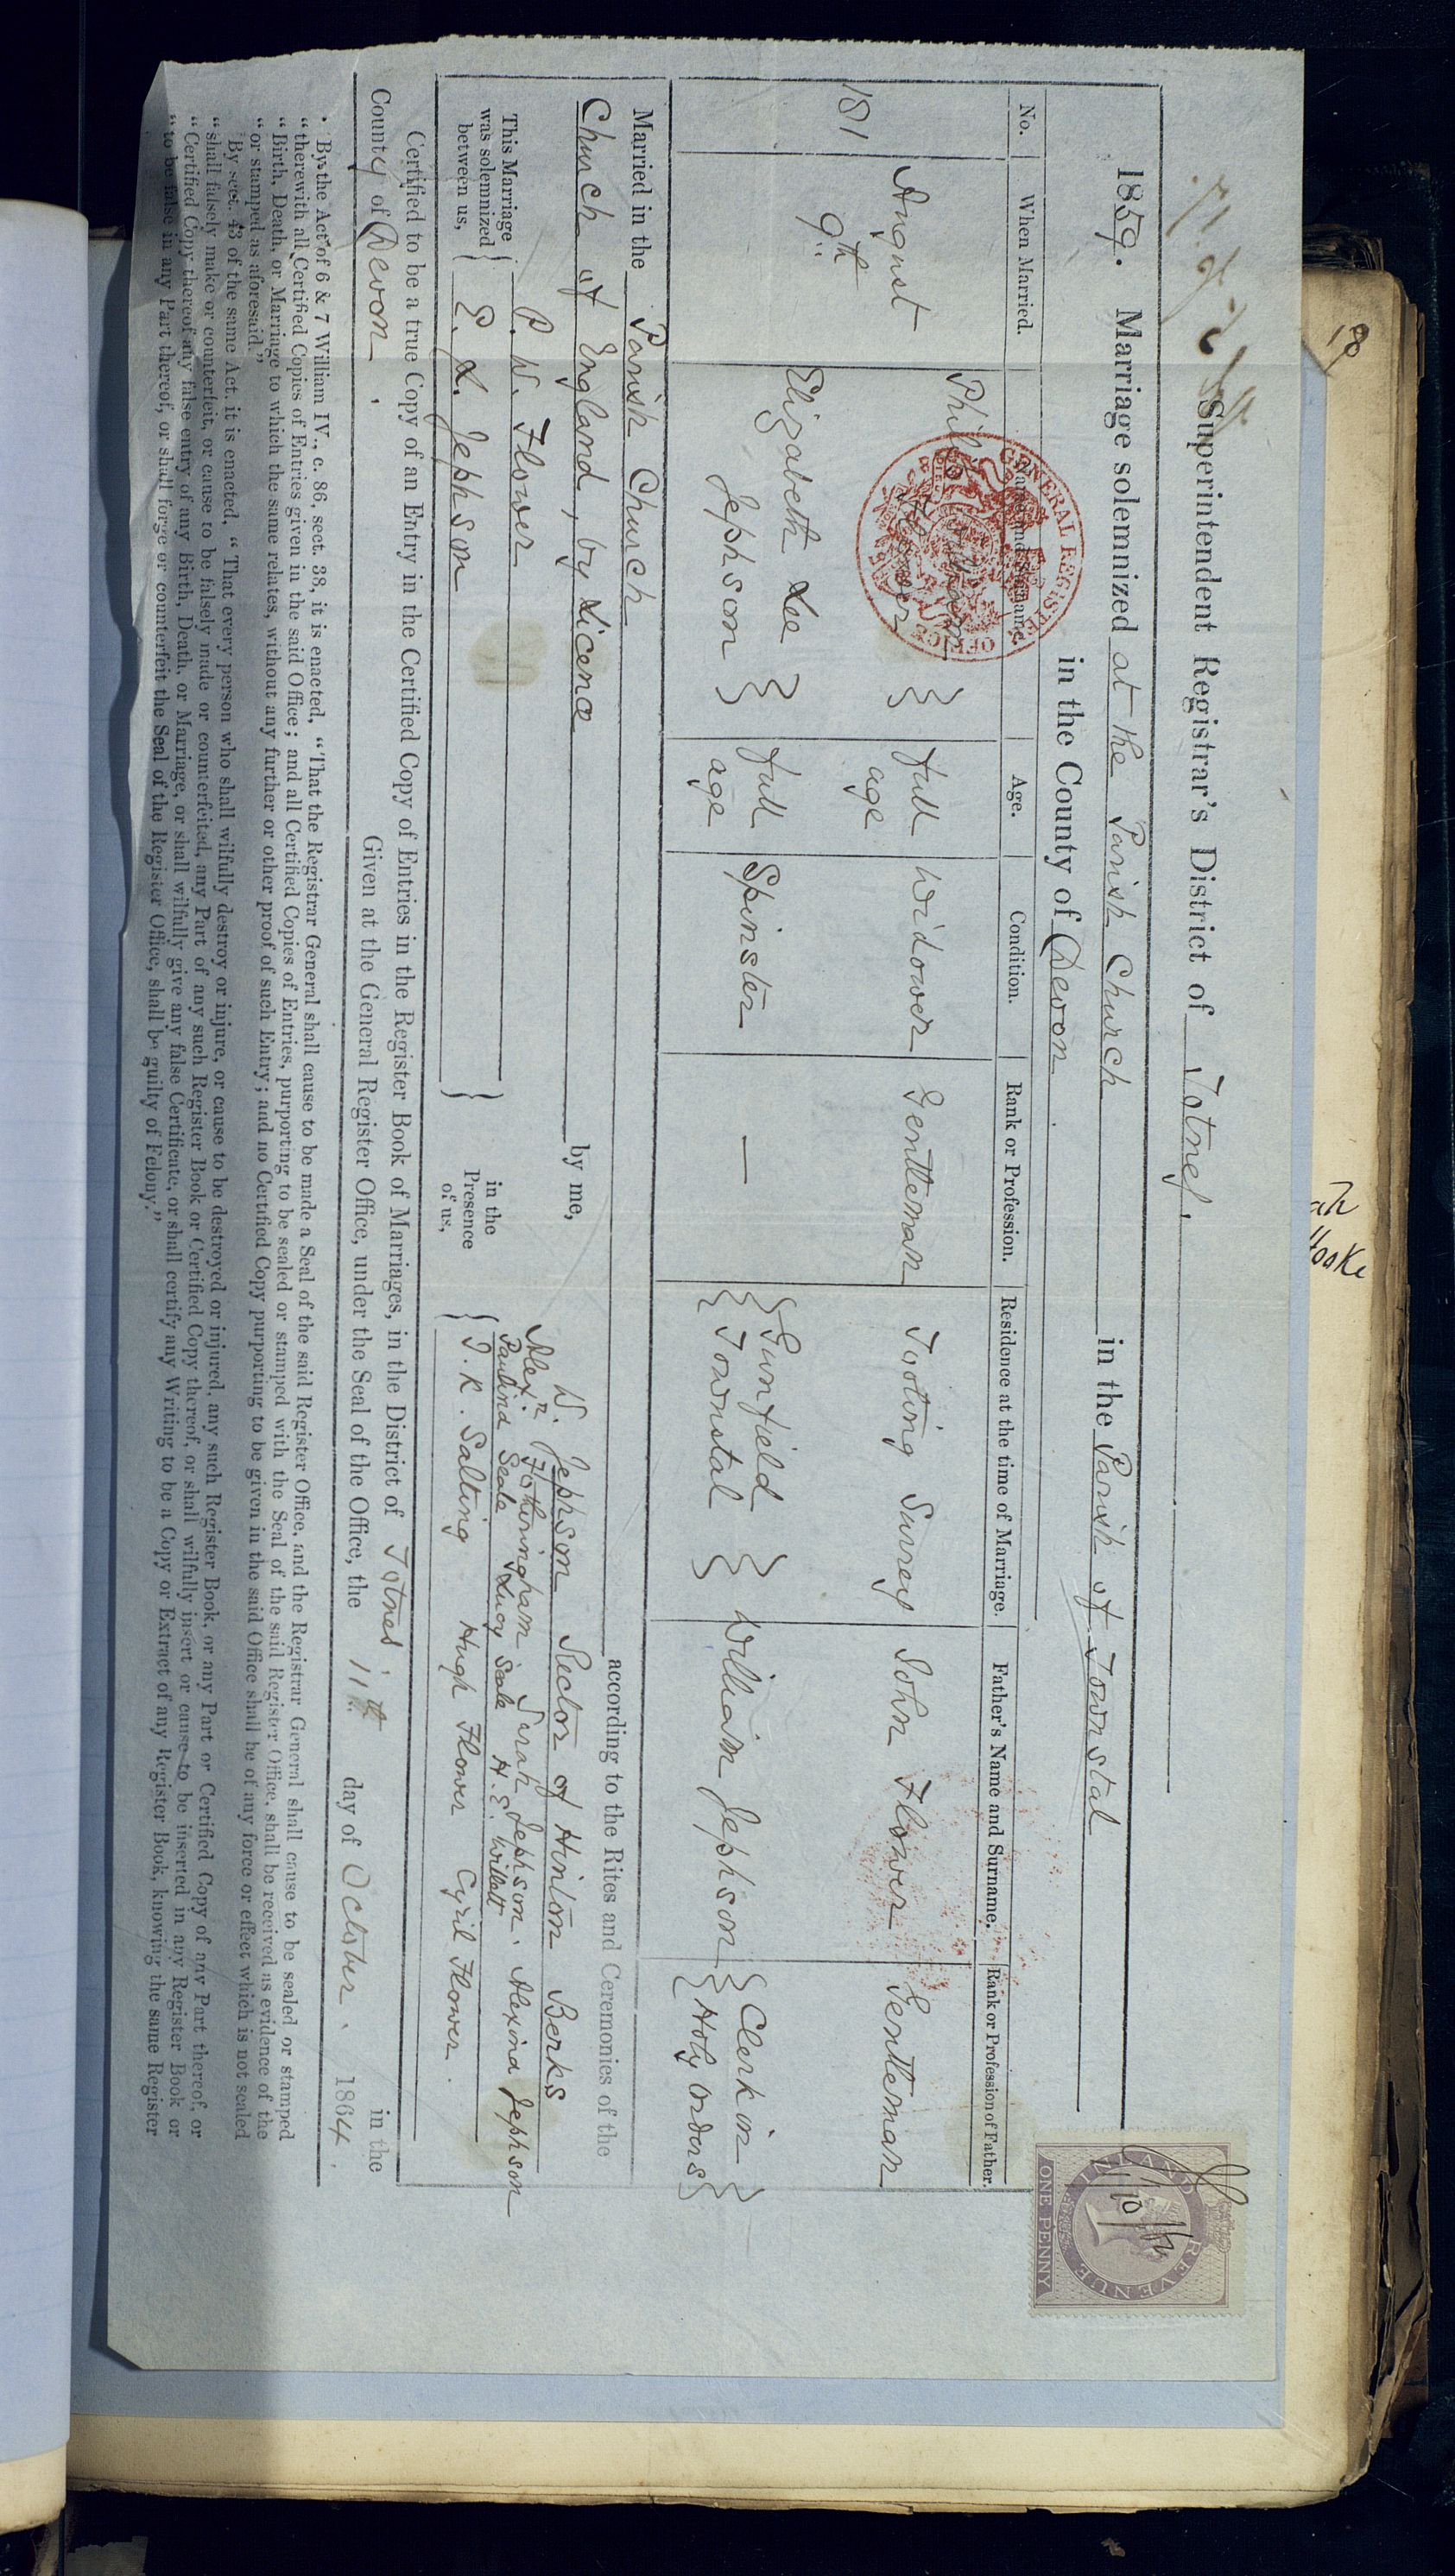 18
Superintendent Registrar's District of Totnes.
1859. Marriage solemnized at the Parish Church in the Parish of Townstal
in the County of Devon
No. When Married. Name and Surname. Age. Condition. Rank or Profession. Residence at the time of Marriage. Father's Name and Surname. Rank or Profession of Father.
181 August 9th Philip William Flower } full age Widower Gentleman Tooting Surrey John Flower Gentleman
Elizabeth Lee Jephson } full age Spinster — { Gunfield Townstal } William Jephson { Clerk in Holy Orders }
Married in the Parish Church according to the Rites and Ceremonies of the
Church of England, by Licence by me,
W. Jephson Rector of Hinton Berks
This Marriage was solemnized between us, { P. W. Flower
E. L. Jephson } in the Presence of us, {
Alexr. Fotheringham Sarah Jephson. Alexina Jephson
Paulina Seale Lucy Seale H. E. Willatt
S. K. Salting Hugh Flower Cyril Flower.
Certified to be a true Copy of an Entry in the Certified Copy of Entries in the Register Book of Marriages, in the District of Totnes in the
County of Devon. Given at the General Register Office, under the Seal of the Office, the 11th day of October. 1864.
• By the Act of 6 & 7 William IV., c. 86, sect. 38, it is enacted, “That the Registrar General shall cause to be made a Seal of the said Register Office, and the Registrar General shall cause to be sealed or stamped
“therewith all Certified Copies of Entries given in the said Office; and all Certified Copies of Entries, purporting to be sealed or stamped with the Seal of the said Register Office, shall be received as evidence of the
“Birth, Death, or Marriage to which the same relates, without any further or other proof of such Entry; and no Certified Copy purporting to be given in the said Office shall be of any force or effect which is not sealed
“or stamped as aforesaid.”
By sect. 43 of the same Act, it is enacted, “That every person who shall wilfully destroy or injure, or cause to be destroyed or injured, any such Register Book, or any Part or Certified Copy of any Part thereof, or
“shall falsely make or counterfeit, or cause to be falsely made or counterfeited, any Part of any such Register Book or Certified Copy thereof, or shall wilfully insert or cause to be inserted in any Register Book or
“Certified Copy thereof any false entry of any Birth, Death, or Marriage, or shall wilfully give any false Certificate, or shall certify any Writing to be a Copy or Extract of any Register Book, knowing the same Register
“to be false in any Part thereof, or shall forge or counterfeit the Seal of the Register Office, shall be guilty of Felony.”
GENERAL REGISTER OFFICE
INLAND REVENUE
ONE PENNY
Hooke